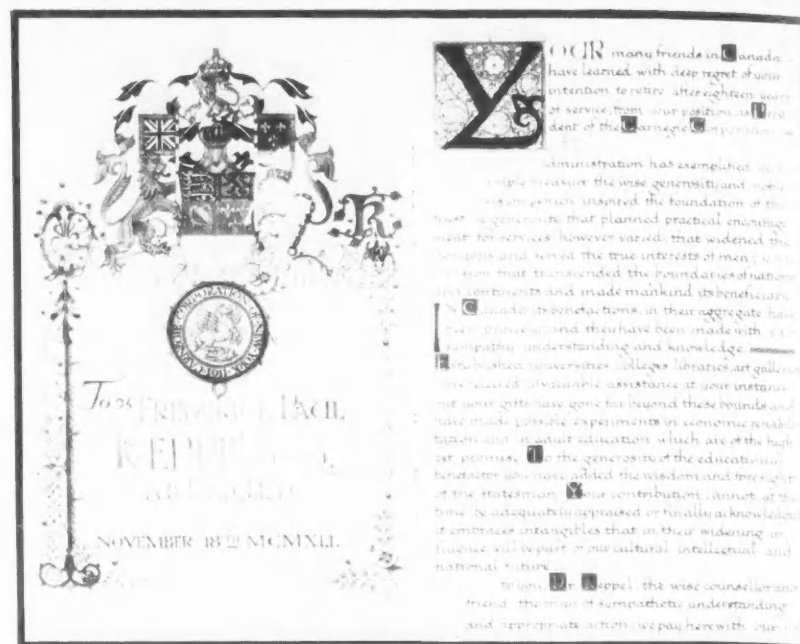 CARNEGIE CORPORATION OF NEW YORK 1911
To FREDERICK PAUL
KEPPEL
NOVEMBER 18th MCMXLI
YOUR many friends in Canada
have learned with deep regret of your
intention to retire, after eighteen years
of service, from your position as Presi
dent of the Carnegie Corporation
administration has exemplified
ample measure the wise generosity and noble
vision which inspired the foundation of the
trust a generosity that planned practical encourage
ment for services however varied, that widened the
horizons and served the true interests of men
vision that transcended the boundaries of nations
and continents and made mankind its beneficiary
IN Canada its benefactions, in their aggregate have
been princely, and they have been made with
sympathy understanding and knowledge
Established universities, colleges libraries, art galleries
have received invaluable assistance at your instance
but your gifts have gone far beyond these bounds and
have made possible experiments in economic rehabili
tation and in adult education which are of the high
est promise To the generosity of the educational
benefactor you have added the wisdom and foresight
of the statesman Your contribution cannot at this
time be adequately appraised or finally acknowledged
it embraces intangibles that in their widening in
fluence will be part of our cultural intellectual and
national future
to you, Dr. Keppel, the wise counsellor and
friend, the man of sympathetic understanding
and appropriate action, we pay herewith our